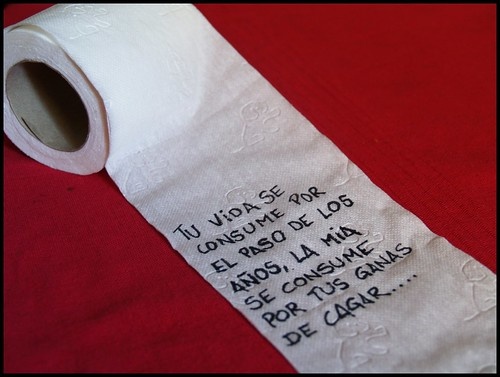 TU ViDA SE
CONSUME POR
EL PASO DE LOS
AÑOS, LA MiA
SE CONSUME
POR TUS GANAS
DE CAGAR.....